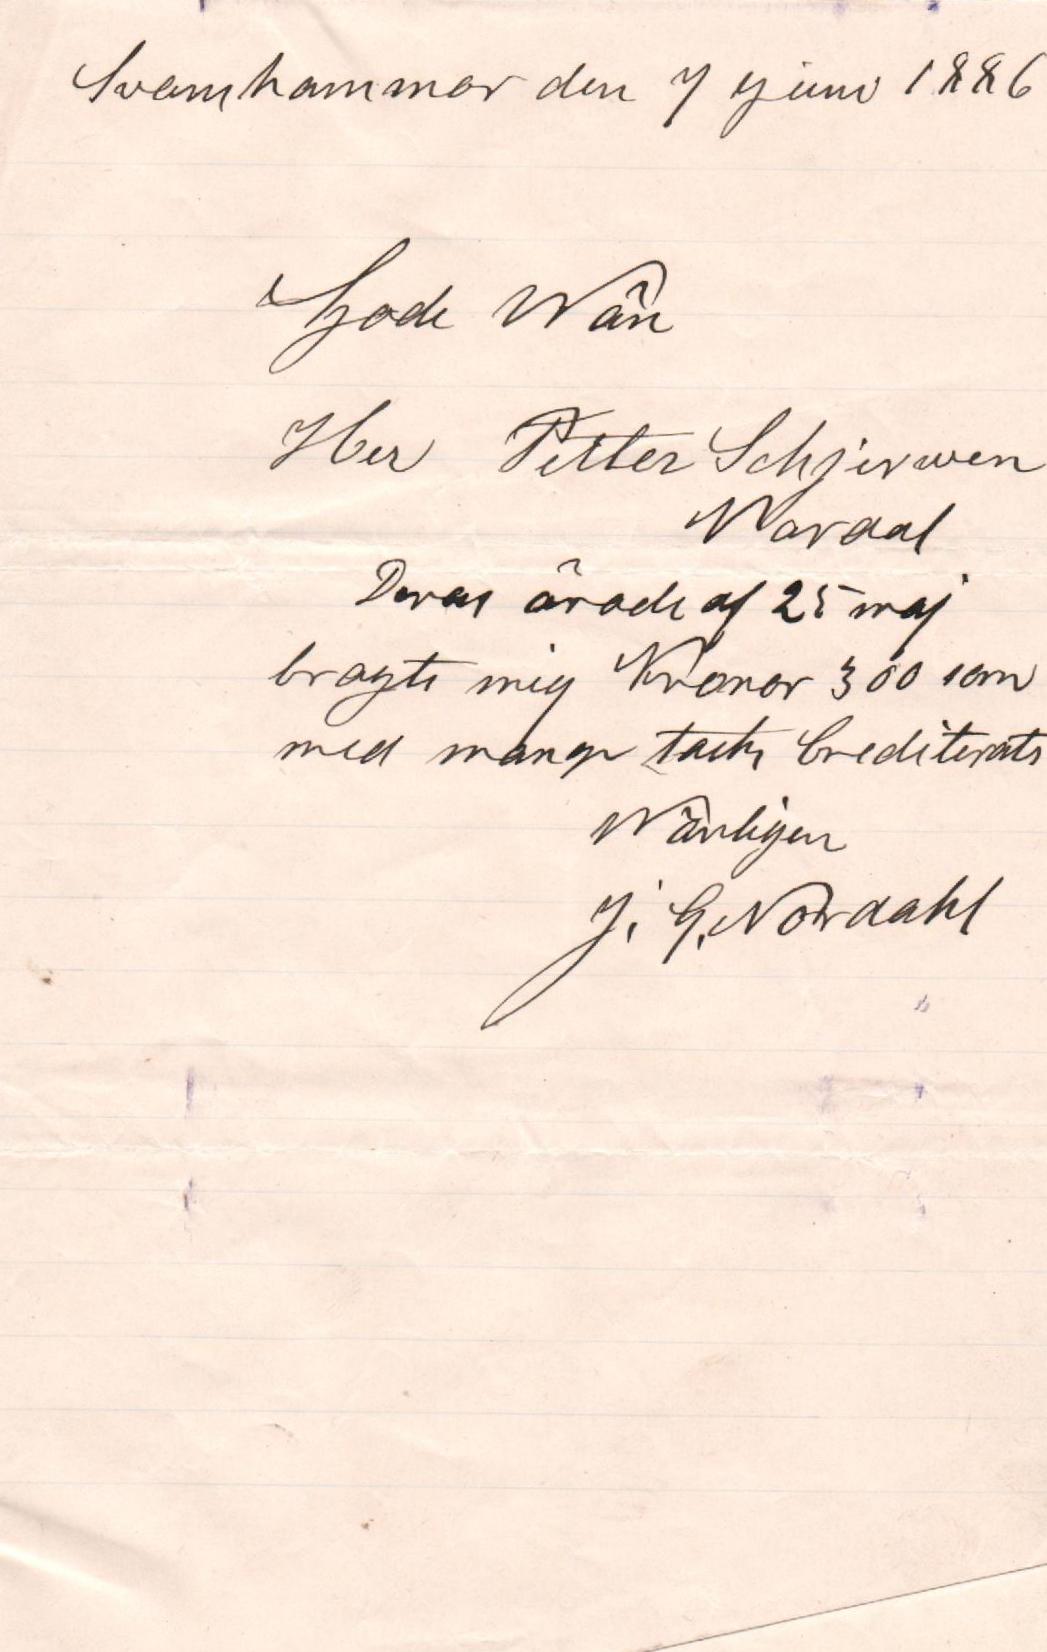 Svamhammar den 7 Juni 1886
Gode Wän
Her Petter Schjerwen
Wardal
Deras ärade af 25 maj
bragte mig Kronor 300 som
med mange tack Crediterats
Wänligen
J. G. Nordahl